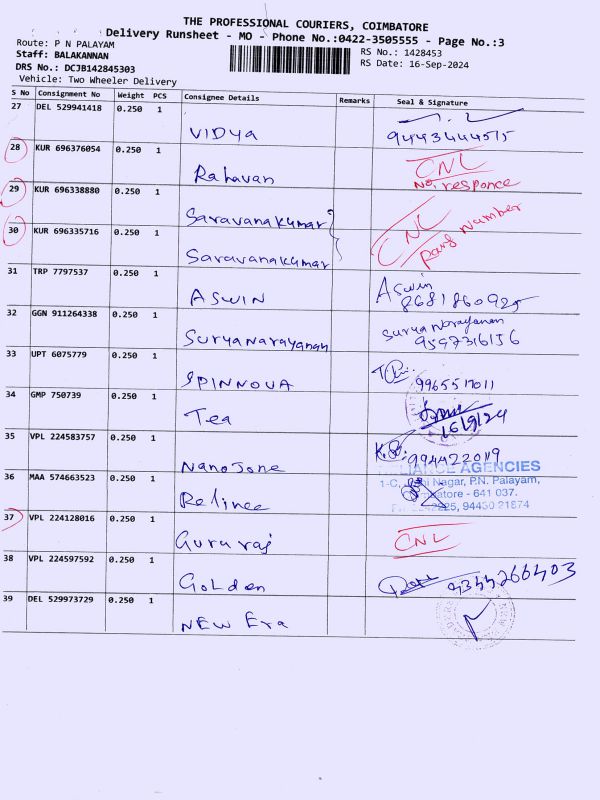 THE PROFESSIONAL COURIERS, COIMBATORE
Delivery Runsheet - MO - Phone No.:0422-3505555 - Page No.:3
Route: P N PALAYAM
RS No.: 1428453
Staff: BALAKANNAN
RS Date: 16-Sep-2024
DRS No.: DCJB142845303
Vehicle: Two Wheeler Delivery
S No Consignment No Weight PCS Consignee Details Remarks Seal & Signature
27 DEL 529941418 0.250 1
VIDYA 9443444515
28 KUR 696376054 0.250 1
Rahavan CNL
No responce
29 KUR 696338880 0.250 1
Saravanakumar
30 KUR 696335716 0.250 1
CNL
number
Saravanakumar
31 TRP 7797537 0.250 1
ASWIN Aswin
8681860925
32 GGN 911264338 0.250 1
Suryanarayanan Suryanarayanan
9597316156
33 UPT 6075779 0.250 1
SPINNOVA 9965517011
34 GMP 750739 0.250 1
Tea 16/9/24
35 VPL 224583757 0.250 1
Nanojone 9944220119
36 MAA 574663523 0.250 1
AGENCIES
Nagar, P.N. Palayam,
641 037.
94430 21874
37 VPL 224128016 0.250 1
Gururaj CNL
38 VPL 224597592 0.250 1
Golden 9344266403
39 DEL 529973729 0.250 1
NEW Era